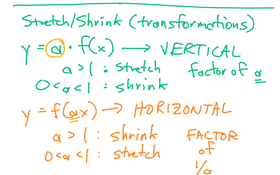 Stretch/Shrink (transformations)
y = a · f(x) → VERTICAL
a > 1 : stretch factor of a
0 < a < 1 : shrink
y = f(ax) → HORIZONTAL
a > 1 : shrink FACTOR
0 < a < 1 : stretch of
1/a